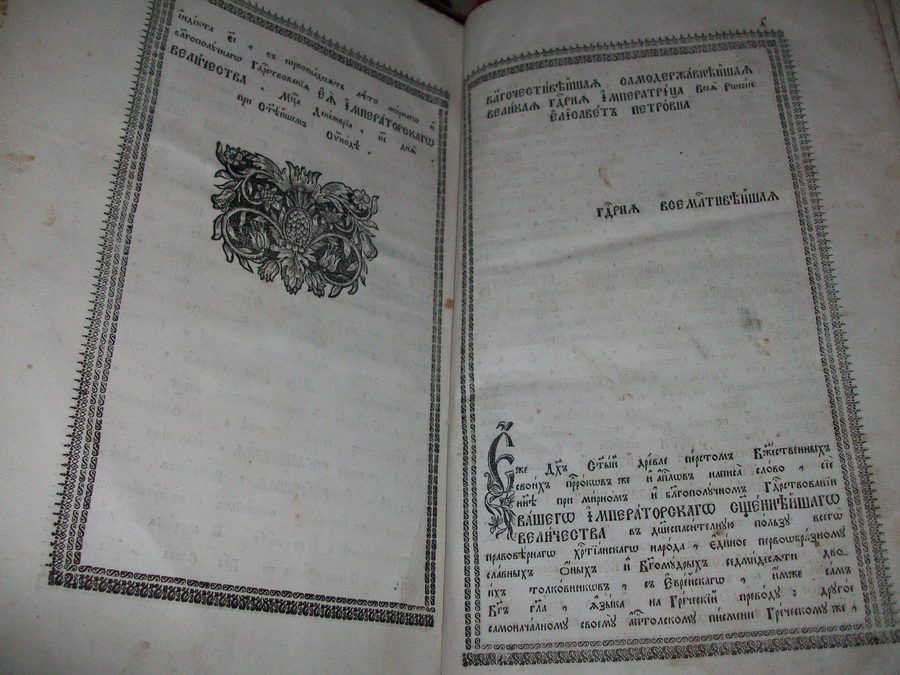 і҆ндікта є҃і , въ первоенадесѧть лѣто мирнагѡ и҆
бл҃гополучнагѡ Гдⷭ҇рствованїѧ ЕѦ̀ І҆МПЕРА́ТОРСКАГѠ
ВЕЛИ́ЧЕСТВА , Мцⷭ҇а Декемврїа , и҃і днѧ̀
при Ст҃ѣ́йшемъ Сѷно́дѣ .
БЛ҃ГОЧЕСТИ́ВѢЙШАѦ САМОДЕРЖА́ВНѢЙШАѦ
ВЕЛИ́КАѦ ГДⷭ҇РНѦ І҆МПЕРАТРИ́ЦА Всеѧ̀ Рѡссі́и
Е҆ЛІСАВЕ́ТЪ ПЕТРО́ВНА
ГДⷭ҇РНѦ ВСЕМЛⷭ҇ТИВѢЙШАѦ
Е҆́же Дх҃ъ Ст҃ы́й дре́вле пе́рстомъ Бжⷭ҇твенныхъ
свои́хъ прⷪ҇ро́кѡвъ же и҆ а҆пⷭ҇лѡвъ написа̀ сло́во , сїѐ
нн҃ѣ при ми́рномъ и҆ бл҃гополу́чномъ Гдⷭ҇рствованїи
ВА́ШЕГѠ І҆МПЕРА́ТОРСКАГѠ СЩ҃Е́ННѢЙШАГѠ
ВЕЛИ́ЧЕСТВА въ дш҃еспаси́тельную по́льзу всегѡ̀
правовѣ́рнагѡ хрⷭ҇тїа́нскагѡ наро́да , є҆ди́ное первоѡбра́зному
сла́вныхъ ѻ҆́ныхъ и҆ Бг҃ому́дрыхъ седми́десѧти дво-
и́хъ толко́вникѡвъ , съ Е҆вре́йскагѡ , и҆́мже са́мъ
Бг҃ъ гл҃а , ѧ҆зы́ка , на Гре́ческїй преводꙋ : друго́е
самонача́лному своемꙋ̀ а҆пⷭ҇толскому писме́ни Гре́ческому же ,